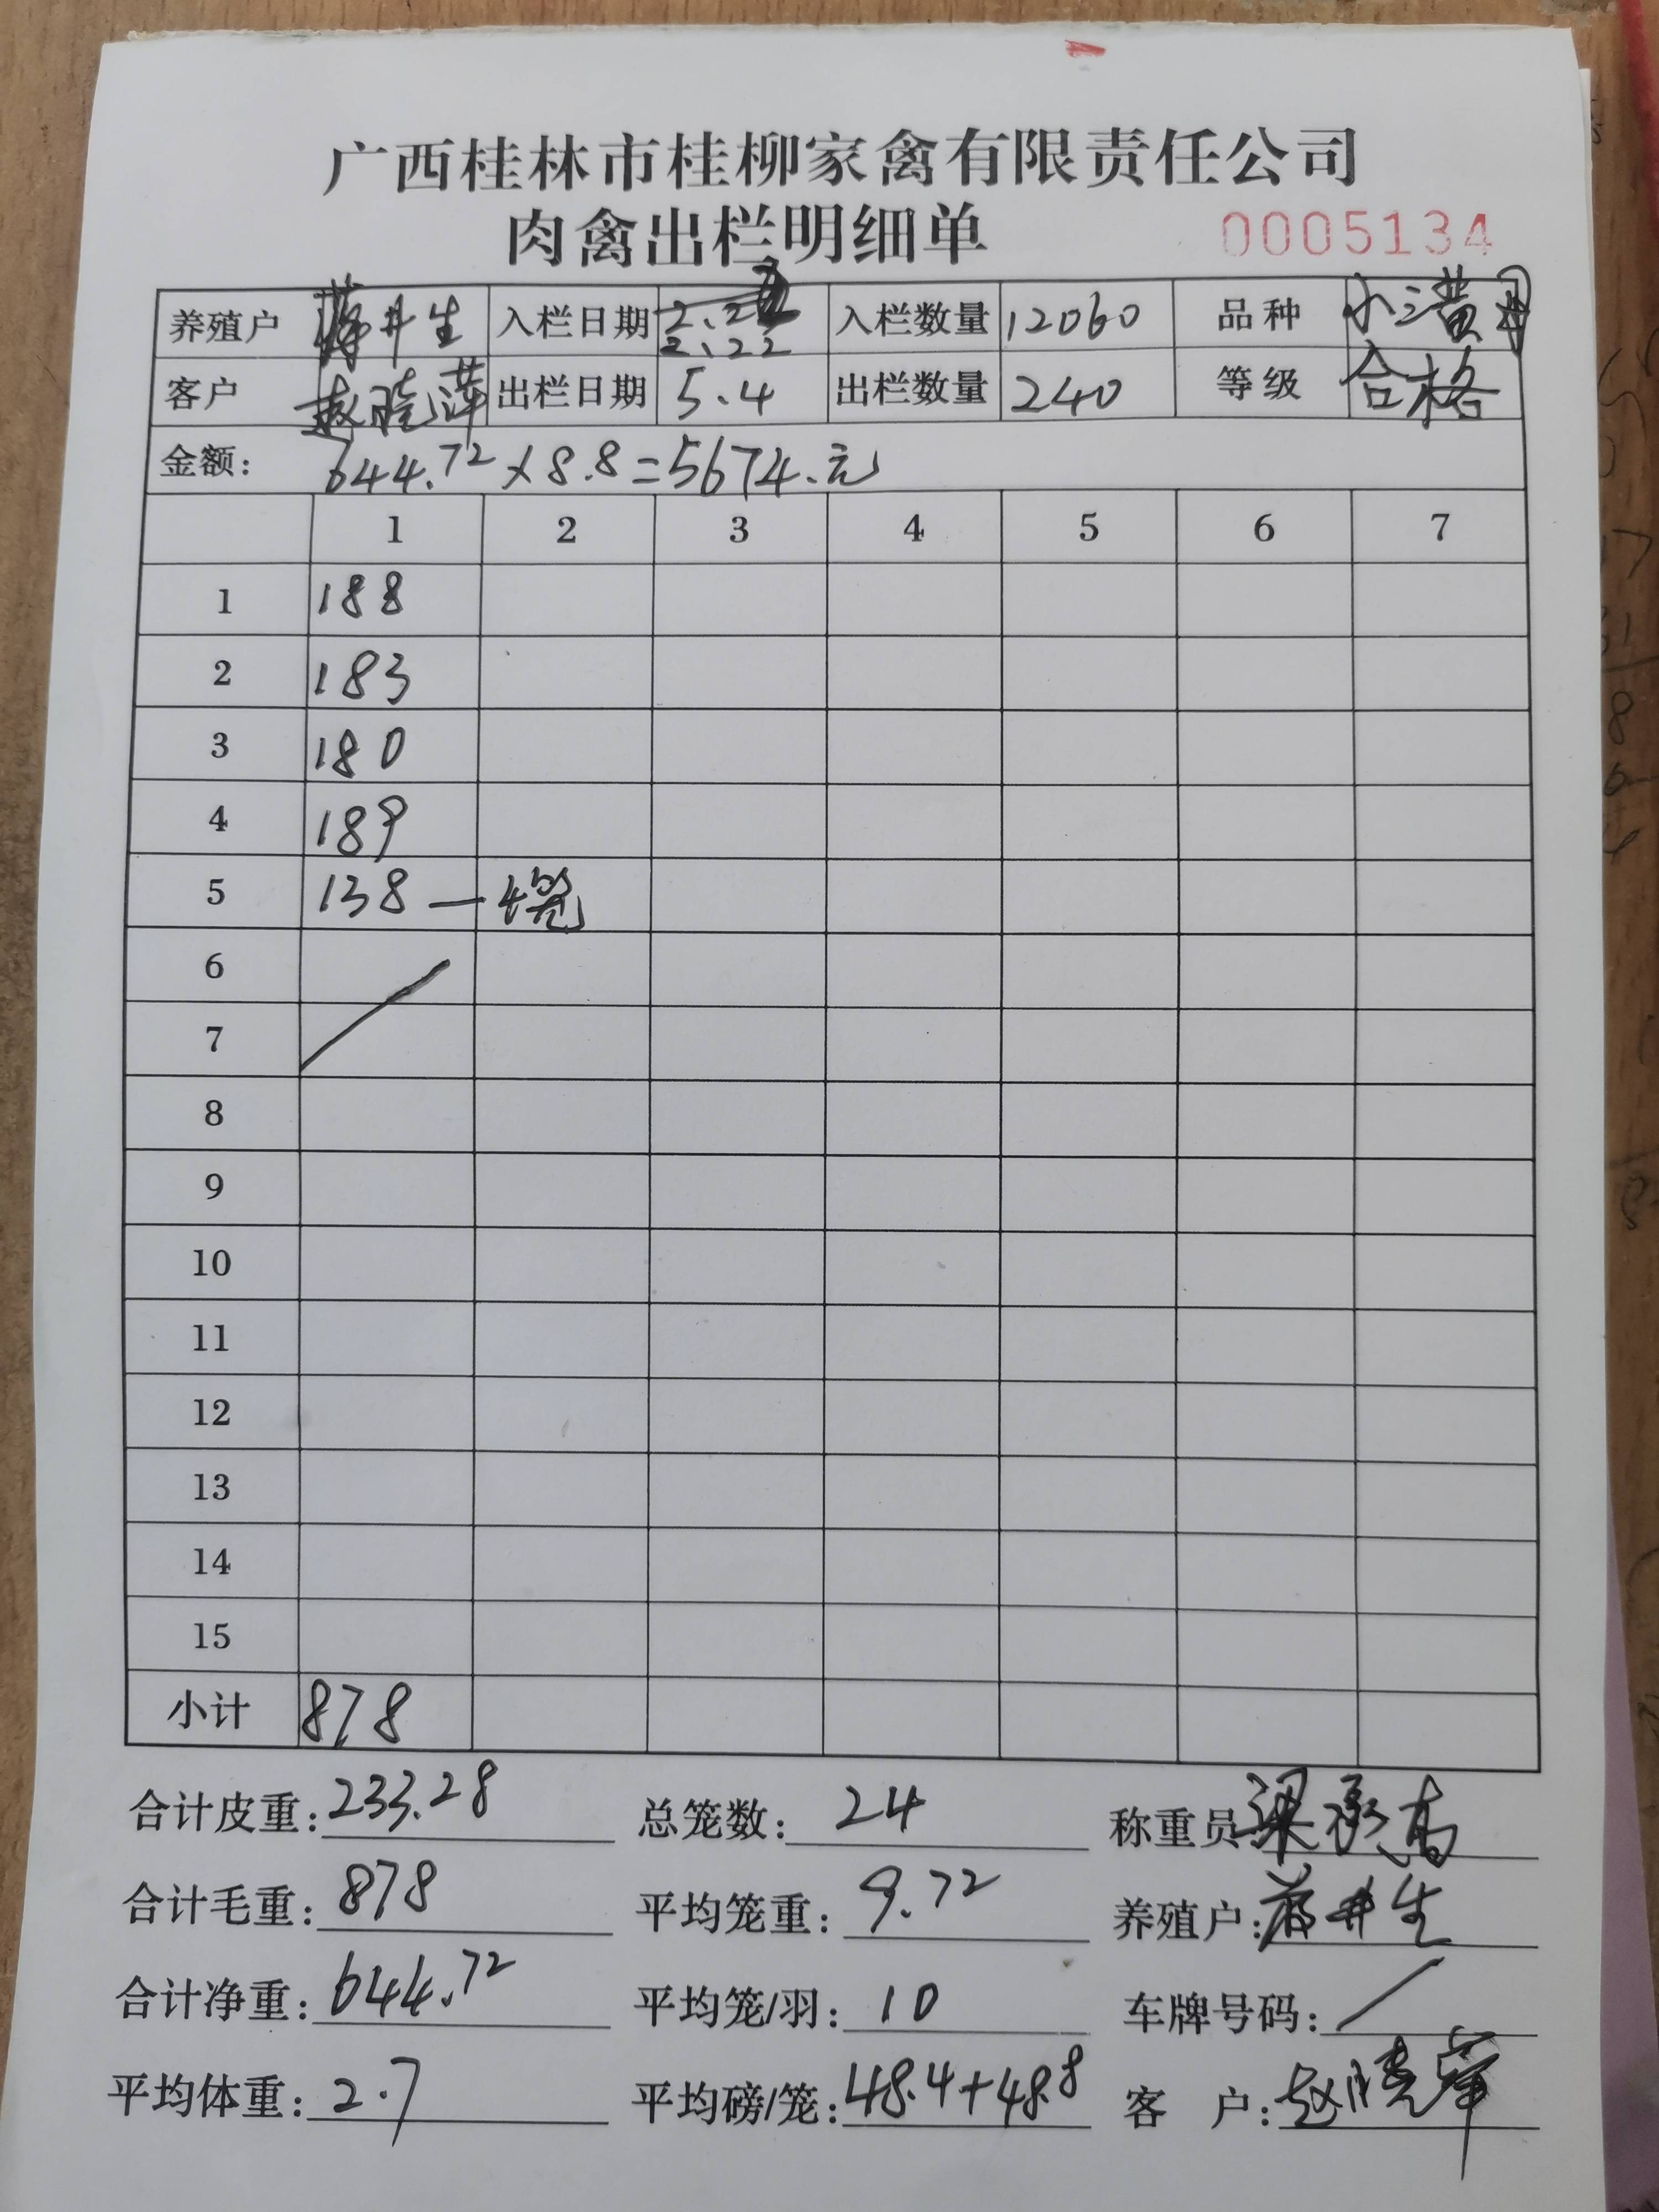 广西桂林市桂柳家禽有限责任公司
肉禽出栏明细单 0005134
养殖户 蒋井生 入栏日期 2.22 入栏数量 12060 品种 小三黄
客户 赵晓萍 出栏日期 5.4 出栏数量 240 等级 合格
金额: 644.72×8.8=5674.元
1 2 3 4 5 6 7
1 188
2 183
3 180
4 189
5 138—4笼
6
7
8
9
10
11
12
13
14
15
小计 878
合计皮重: 233.28 总笼数: 24 称重员 梁承高
合计毛重: 878 平均笼重: 9.72 养殖户: 蒋井生
合计净重: 644.72 平均笼/羽: 10 车牌号码: /
平均体重: 2.7 平均磅/笼: 48.4+48.8 客 户: 赵晓萍